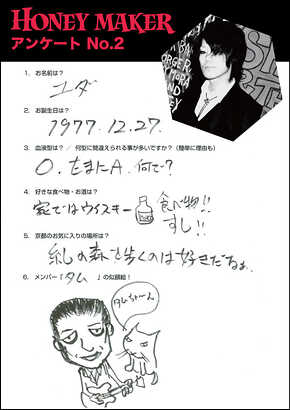 HONEY MAKER
アンケート No.2
1. お名前は?
ユダ
2. お誕生日は?
1977.12.27.
3. 血液型は? / 何型に間違えられる事が多いですか?(簡単に理由も)
O. たまにA. 何で?
4. 好きな食べ物・お酒は?
家ではウイスキー 食べ物!! すし!!
5. 京都のお気に入りの場所は?
糺しの森を歩くのは好きだなぁ。
6. メンバー「タム 」の似顔絵!
タムちゃ〜ん